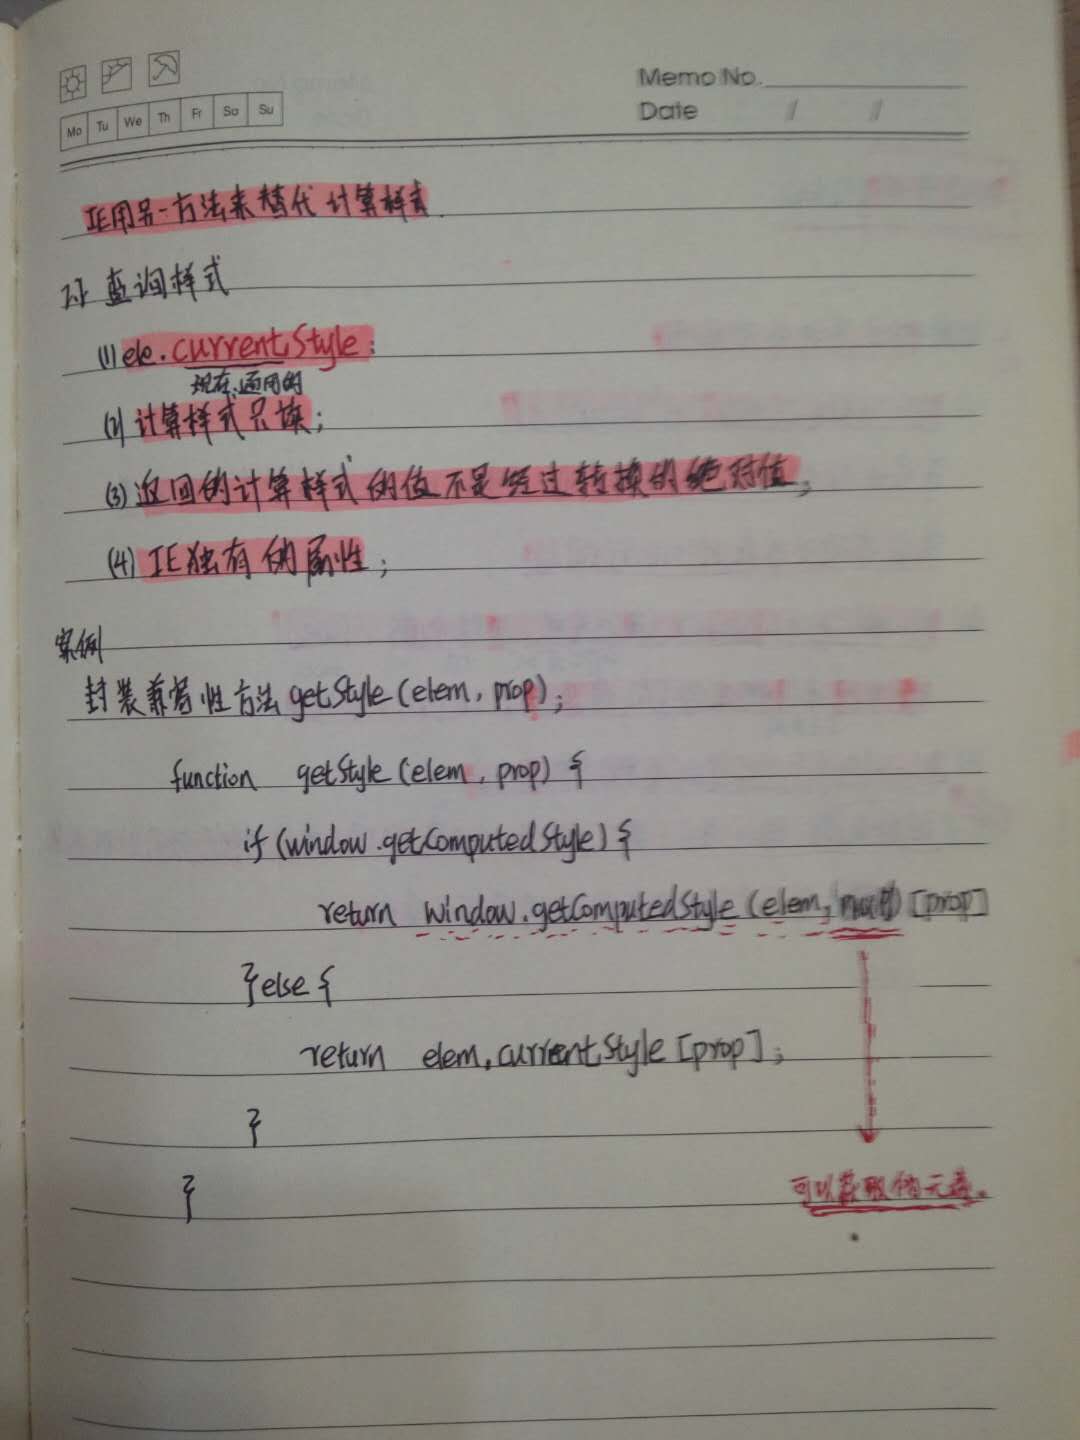 Memo No.
Mo Tu We Th Fr Sa Su
Date / /
IE用另一方法来替代计算样式
查询样式
(1) ele.currentStyle;
现在,通用的
(2) 计算样式只读;
(3) 返回的计算样式的值不是经过转换的绝对值;
(4) IE独有的属性;
案例
封装兼容性方法 getStyle(elem, prop);
function getStyle(elem, prop) {
if (window.getComputedStyle) {
return window.getComputedStyle(elem, null) [prop]
}else {
return elem.currentStyle [prop];
}
}
可以获取伪元素。